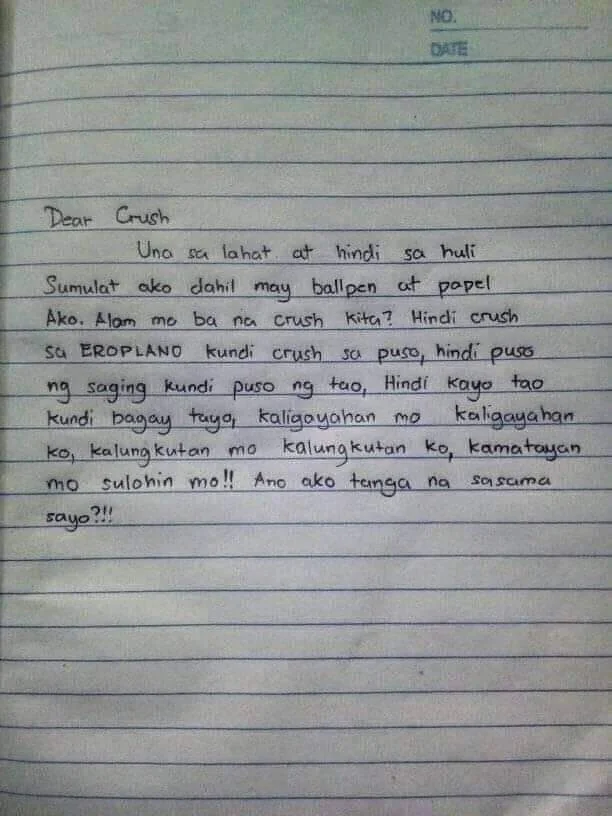 NO.
DATE
Dear Crush
Una sa lahat at hindi sa huli
Sumulat ako dahil may ballpen at papel
Ako. Alam mo ba na crush kita? Hindi crush
sa EROPLANO kundi crush sa puso, hindi puso
ng saging kundi puso ng tao, Hindi kayo tao
kundi bagay tayo, kaligayahan mo kaligayahan
ko, kalungkutan mo kalungkutan ko, kamatayan
mo sulohin mo!! Ano ako tanga na sasama
sayo?!!